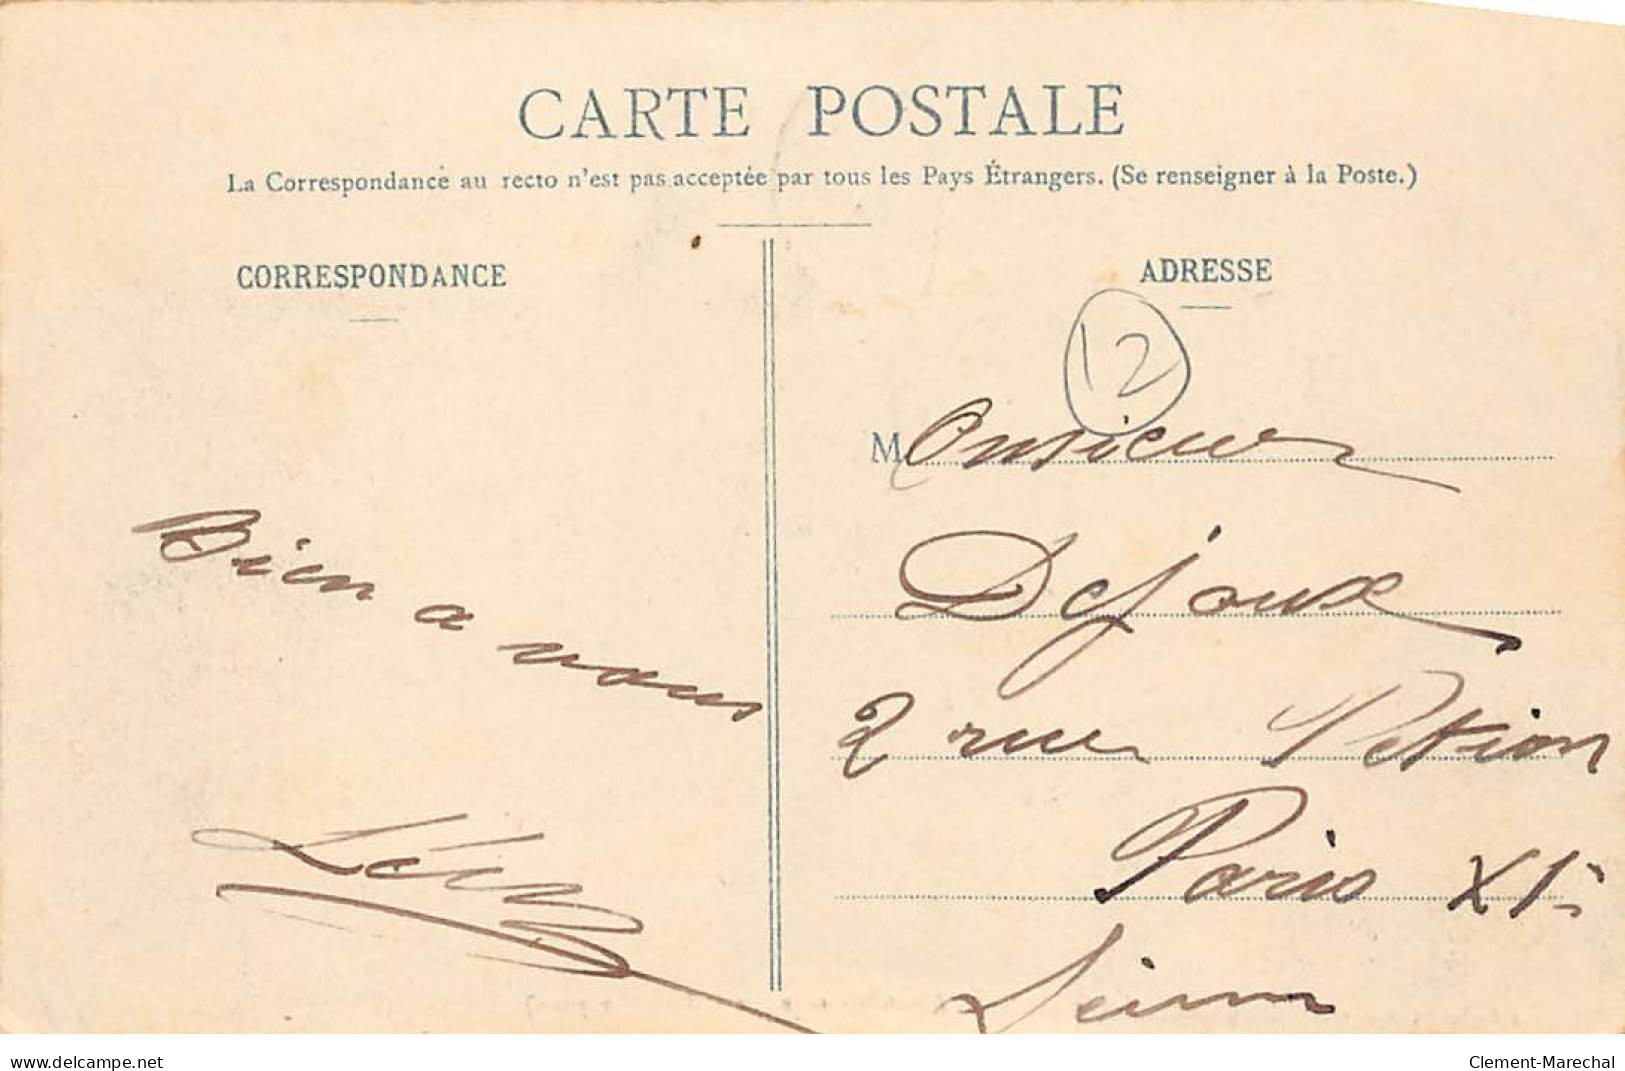 CARTE POSTALE
La Correspondance au recto n'est pas acceptée par tous les Pays Étrangers. (Se renseigner à la Poste.)
CORRESPONDANCE
ADRESSE
12
Monsieur
Dejoux
2 rue Petion
Paris XIe
Seine
Bien a vous
delcampe.net
Clement-Marechal